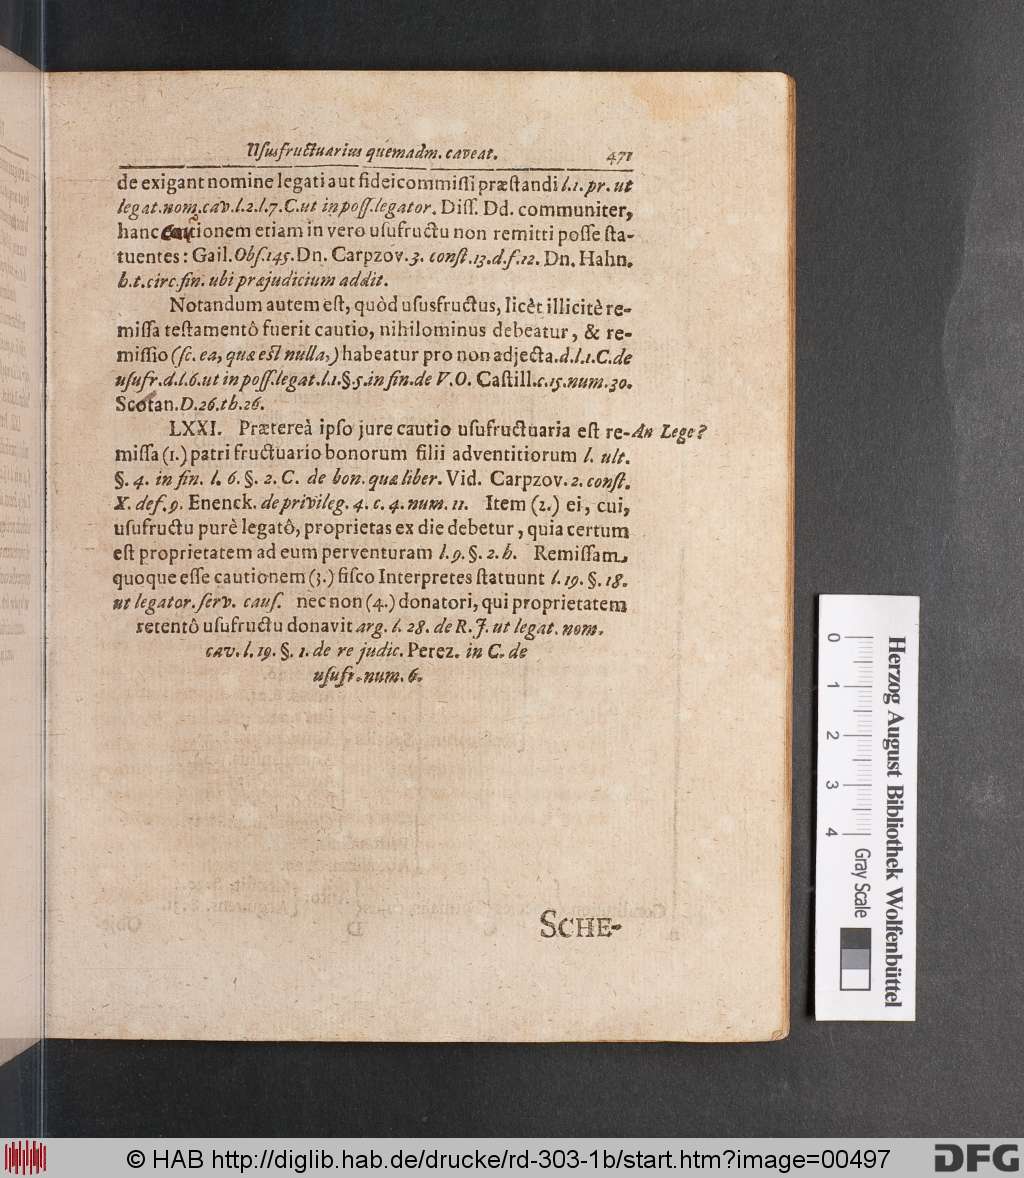 Uſusfructuarius quemadm. caveat. 471
de exigant nomine legati aut fideicommiſſi præſtandi l.1.pr.ut
legat.nom.cav.l.2.l.7.C.ut in poſſ.legator. Diſſ. Dd. communiter,
hanc cautionem etiam in vero uſufructu non remitti poſſe ſta-
tuentes: Gail. Obſ.145. Dn. Carpzov. 3. conſt.13.d.f.12. Dn. Hahn.
h.t.circ.fin. ubi præjudicium addit.
Notandum autem eſt, quòd uſusfructus, licèt illicitè re-
miſſa teſtamentô fuerit cautio, nihilominus debeatur, & re-
miſſio (ſc. ea, quæ eſt nulla,) habeatur pro non adjecta. d.l.1.C.de
uſufr.d.l.6.ut in poſſ.legat.l.1.§.5.in fin.de V.O. Caſtill.c.15.num.30.
Scotan.D.26.th.26.
LXXI. Prætereà ipſo jure cautio uſufructuaria eſt re- An Lege?
miſſa (1.) patri fructuario bonorum filii adventitiorum l. ult.
§. 4. in fin. l. 6. §. 2. C. de bon. quæ liber. Vid. Carpzov. 2. conſt.
X. def. 9. Enenck. de privileg. 4. c. 4. num. 11. Item (2.) ei, cui,
uſufructu purè legatô, proprietas ex die debetur, quia certum
eſt proprietatem ad eum perventuram l. 9. §. 2. h. Remiſſam
quoque eſſe cautionem (3.) fiſco Interpretes ſtatuunt l. 19. §. 18.
ut legator. ſerv. cauſ. nec non (4.) donatori, qui proprietatem
retentô uſufructu donavit arg. l. 28. de R. J. ut legat. nom.
cav. l. 19. §. 1. de re judic. Perez. in C. de
uſufr. num. 6.
SCHE-
0 1 2 3 4 Gray Scale
Herzog August Bibliothek Wolfenbüttel
© HAB http://diglib.hab.de/drucke/rd-303-1b/start.htm?image=00497
DFG